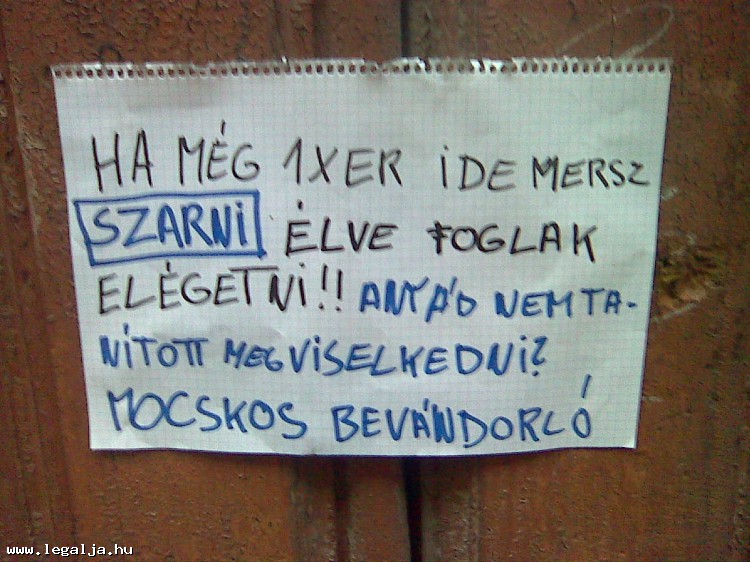 HA MÉG 1XER IDE MERSZ
SZARNI ÉLVE FOGLAK
ELÉGETNI!! ANYÁD NEM TA-
NÍTOTT MEG VISELKEDNI?
MOCSKOS BEVÁNDORLÓ
www.legalja.hu